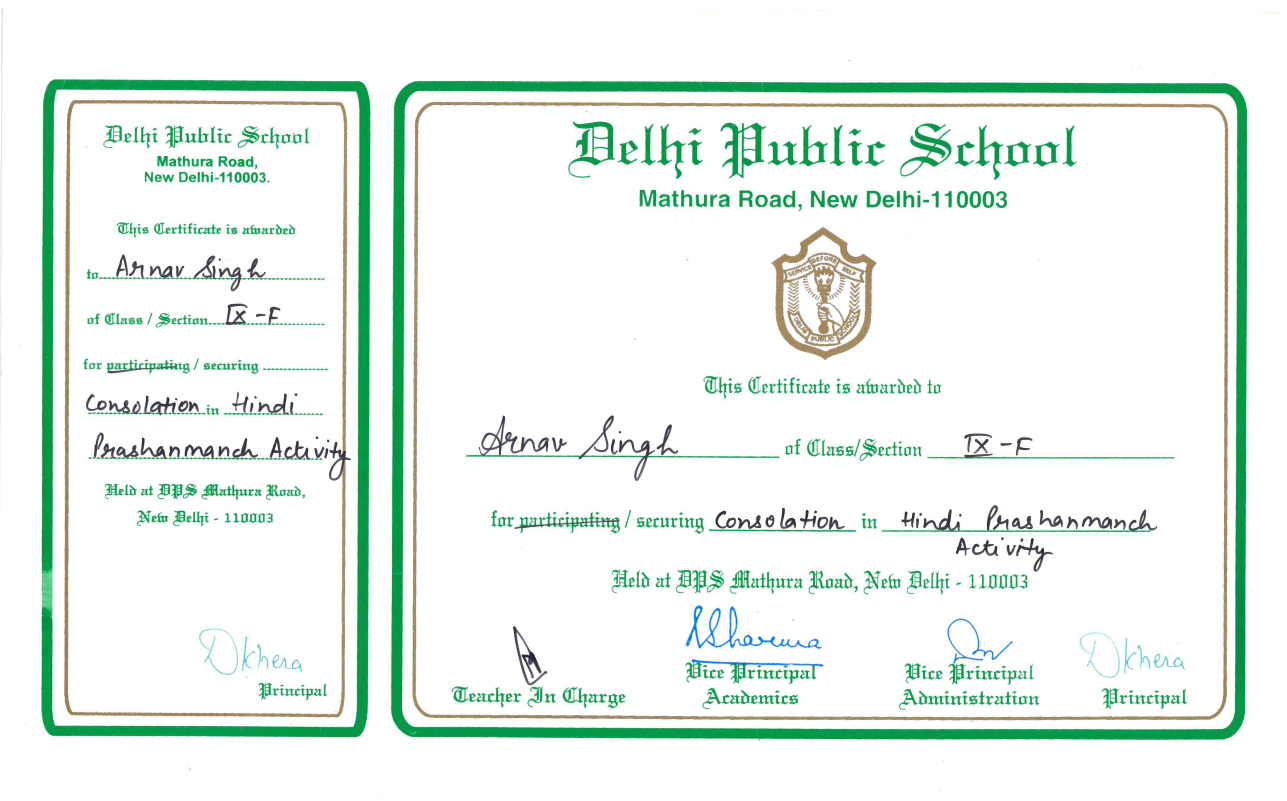 Delhi Public School
Mathura Road,
New Delhi-110003.
This Certificate is awarded
to Arnav Singh
of Class / Section IX-F
for participating / securing
Consolation in Hindi
Prashanmanch Activity
Held at DPS Mathura Road,
New Delhi - 110003
Dkhera
Principal
Delhi Public School
Mathura Road, New Delhi-110003
SERVICE BEFORE SELF
DELHI PUBLIC SCHOOL
This Certificate is awarded to
Arnav Singh of Class/Section IX-F
for participating / securing Consolation in Hindi Prashanmanch
Activity
Held at DPS Mathura Road, New Delhi - 110003
RSharma Dkhera
Vice Principal Vice Principal
Teacher In Charge Academics Administration Principal